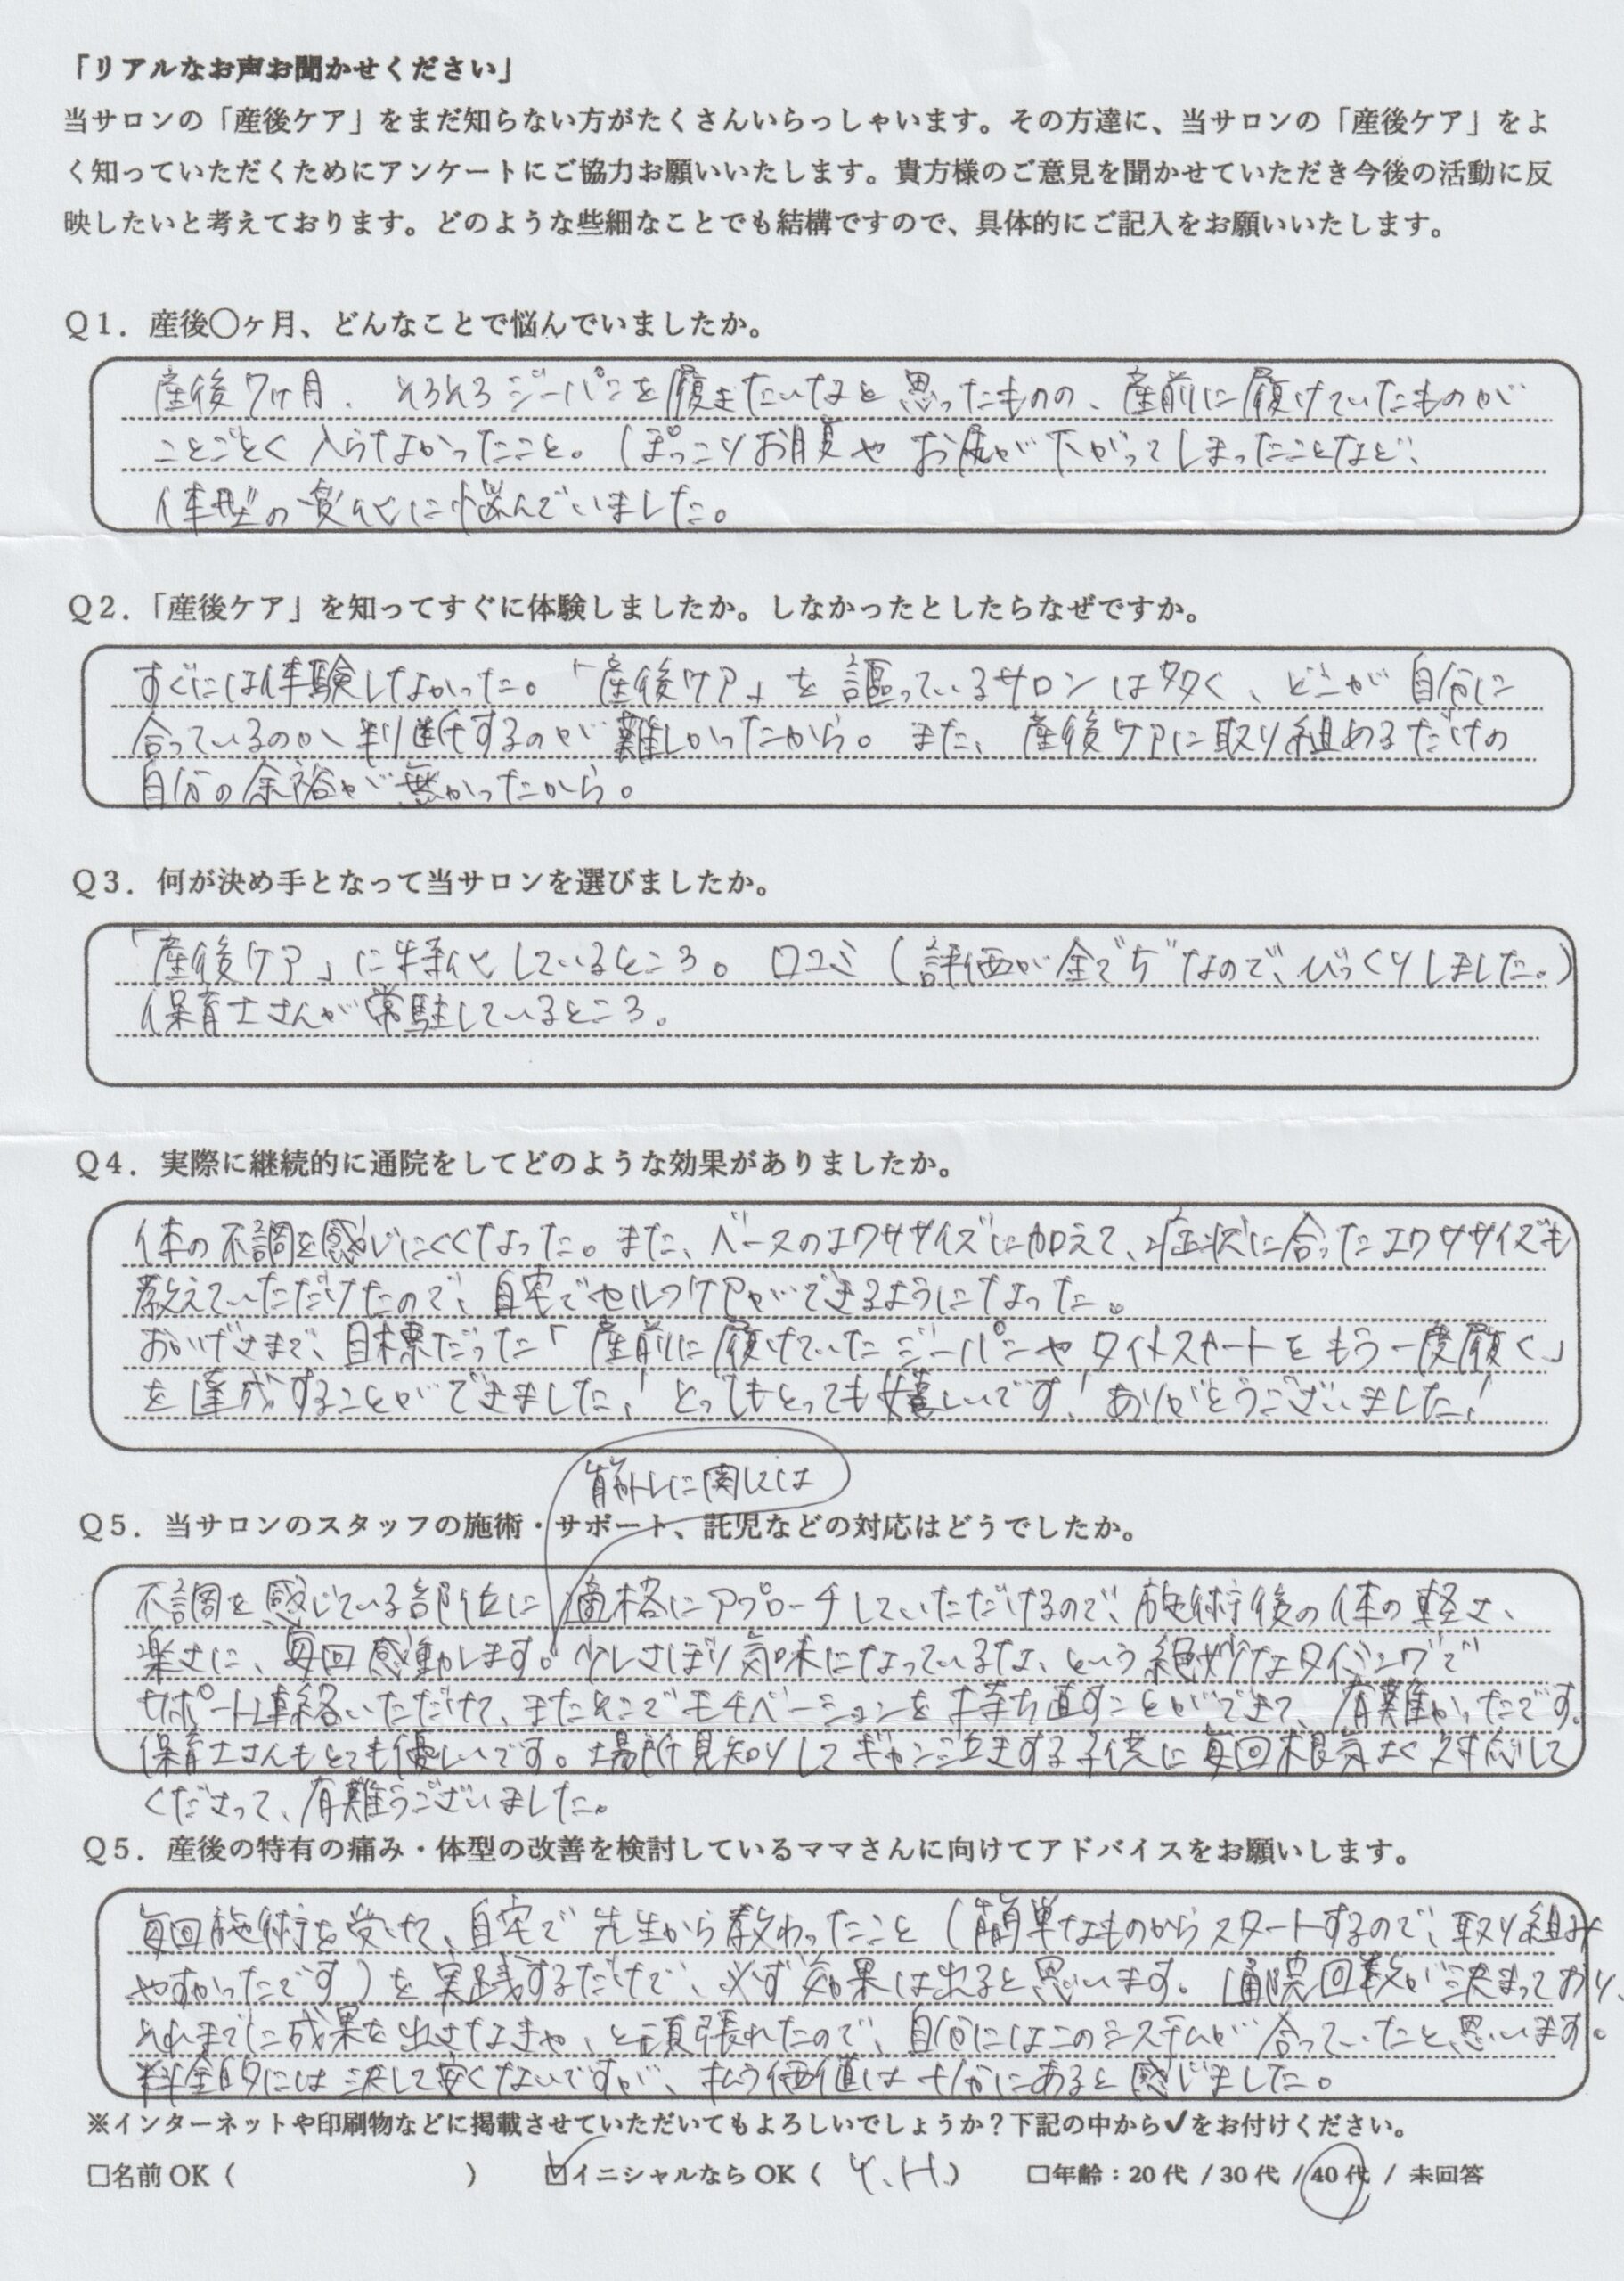 「リアルなお声お聞かせください」
当サロンの「産後ケア」をまだ知らない方がたくさんいらっしゃいます。その方達に、当サロンの「産後ケア」をよ
く知っていただくためにアンケートにご協力お願いいたします。貴方様のご意見を聞かせていただき今後の活動に反
映したいと考えております。どのような些細なことでも結構ですので、具体的にご記入をお願いいたします。
Q1．産後〇ヶ月、どんなことで悩んでいましたか。
産後7ヶ月．そろそろジーパンを履きたいなと思ったものの、産前に履けていたものが
ことごとく入らなかったこと。ぽっこりお腹やお尻が下がってしまったことなど、
体型の変化に悩んでいました。
Q2．「産後ケア」を知ってすぐに体験しましたか。しなかったとしたらなぜですか。
すぐには体験しなかった。「産後ケア」を謳っているサロンは多く、どこが自分に
合っているのか判断するのが難しかったから。また、産後ケアに取り組めるだけの
自分の余裕が無かったから。
Q3．何が決め手となって当サロンを選びましたか。
「産後ケア」に特化しているところ。口コミ（評価が全て“5”なので、びっくりしました。）
保育士さんが常駐しているところ。
Q4．実際に継続的に通院をしてどのような効果がありましたか。
体の不調を感じにくくなった。また、ベースのエクササイズに加えて、症状に合ったエクササイズも
教えていただけたので、自宅でセルフケアができるようになった。
おかげさまで、目標だった「産前に履けていたジーパンやタイトスカートをもう一度履く」
を達成することができました！とってもとっても嬉しいです！ありがとうございました！
筋トレに関しては
Q5．当サロンのスタッフの施術・サポート、託児などの対応はどうでしたか。
不調を感じている部位に適格にアプローチしていただけるので、施術後の体の軽さ、
楽さに、毎回感動します。少しさぼり気味になっているな、という絶妙なタイミングで
サポート連絡いただけて、またそこでモチベーションを持ち直すことができて、有難かったです。
保育士さんもとても優しいです。場所見知りしてギャン泣きする子供に毎回根気よく対応して
くださって、有難うございました。
Q5．産後の特有の痛み・体型の改善を検討しているママさんに向けてアドバイスをお願いします。
毎回施術を受けて、自宅で先生から教わったこと（簡単なものからスタートするので、取り組み
やすかったです）を実践するだけで、必ず効果は出ると思います。通院回数が決まっており、
それまでに成果を出さなきゃ、と頑張れたので、自分にはこのシステムが合っていたと思います。
料金的には決して安くないですが、払う価値は十分にあると感じました。
※インターネットや印刷物などに掲載させていただいてもよろしいでしょうか？下記の中から✔をお付けください。
□名前 OK（　　　　　　　　）　☑イニシャルなら OK（ Y.H. ）　□年齢：20 代 / 30 代 / 40 代 / 未回答